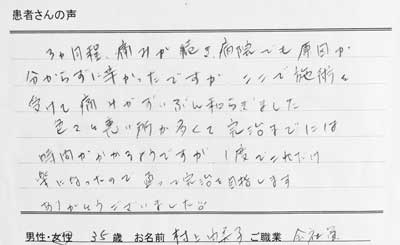 患者さんの声
3ヶ月程、痛みが続き、病院でも原因が
分からずに辛かったですが ここで施術を
受けて痛みがずいぶん和らぎました
色々と悪い所が多くて 完治までには
時間がかかるようですが 1度でこれだけ
楽になったので 通って完治を目指します
ありがとうございました。
男性・女性 35歳 お名前 村上 子 ご職業 会社員